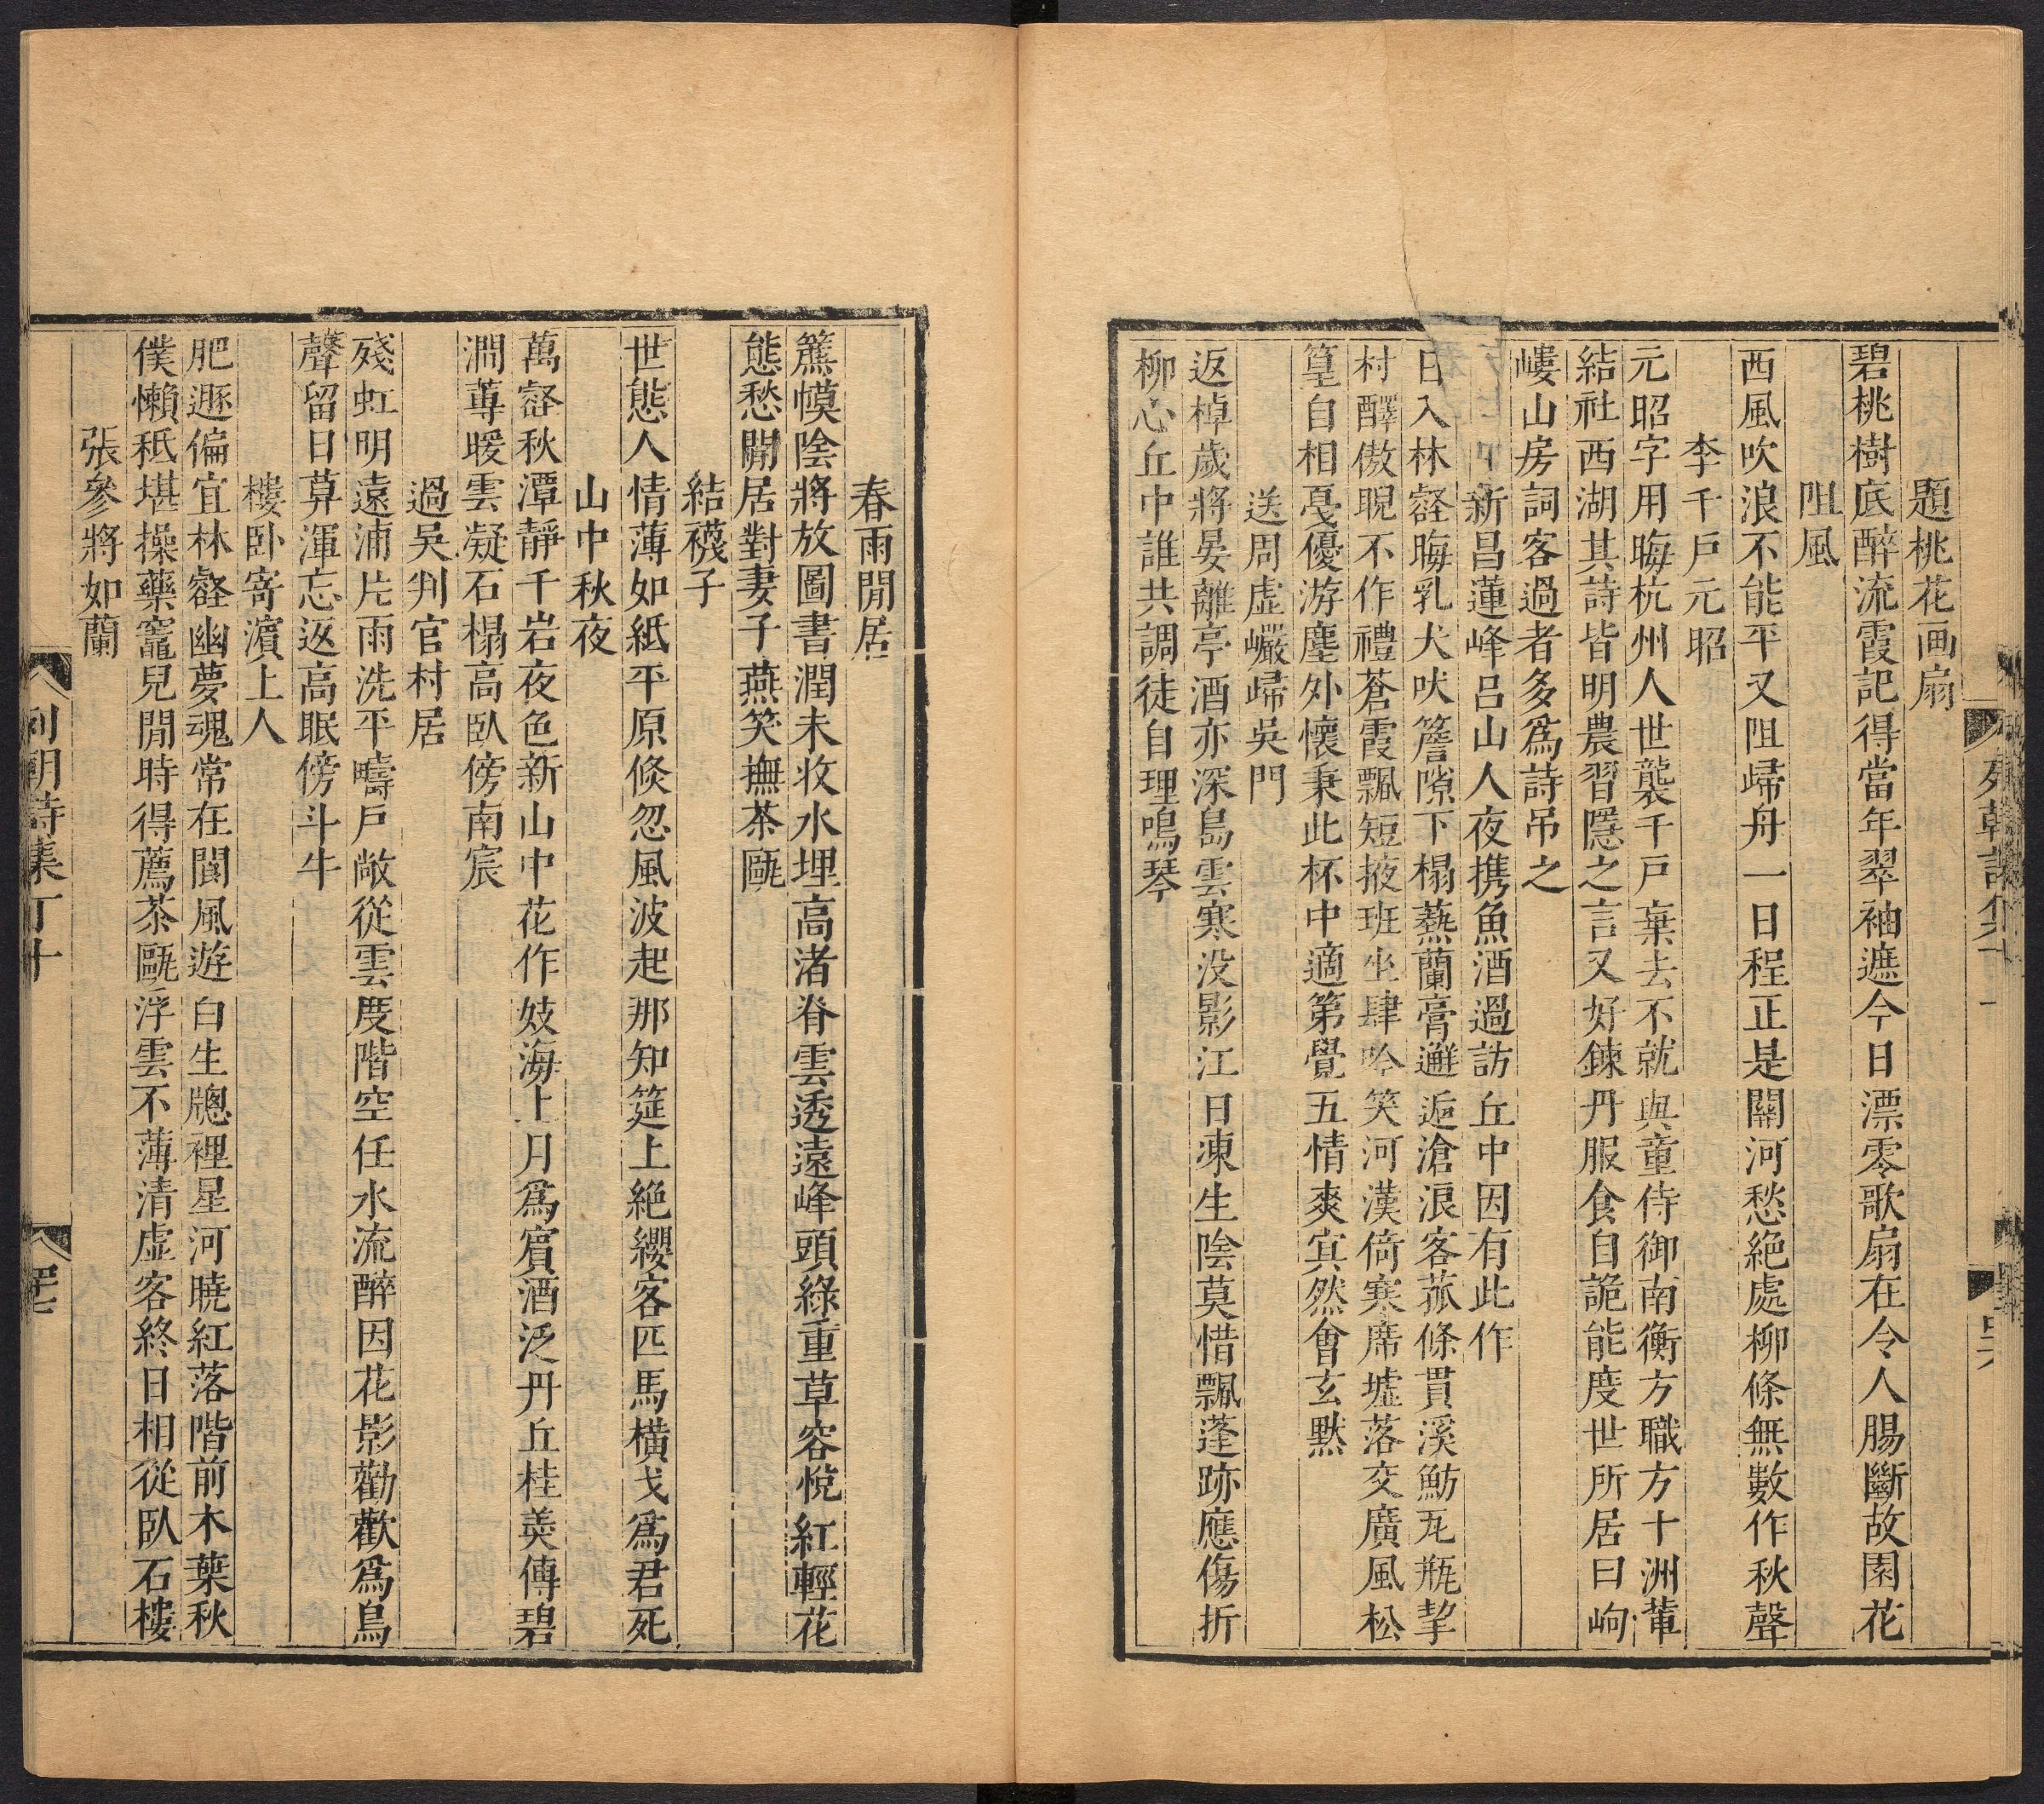 題桃花画扇
碧桃樹底醉流霞記得當年翠袖遮今日漂零歌扇在令人腸斷故園花
阻風
西風吹浪不能平又阻歸舟一日程正是關河愁絶處柳條無數作秋聲
李千戶元昭
元昭字用晦杭州人世襲千戶棄去不就與童侍御南衡方職方十洲輩
結社西湖其詩皆明農習隱之言又好鍊丹服食自詭能度世所居曰岣
嶁山房詞客過者多爲詩吊之
新昌蓮峰呂山人夜携魚酒過訪丘中因有此作
日入林壑晦乳犬吠簷隙下榻爇蘭膏邂逅滄浪客菰條貫溪魴瓦瓶挈
村醳傲睨不作禮蒼霞飄短掖班坐肆吟笑河漢倚寒席墟落交廣風松
篁自相戞優游塵外懷秉此杯中適第覺五情爽宾然會玄黙
送周虛巖歸吳門
返棹歲將晏離亭酒亦深島雲寒没影江日凍生陰莫惜飄蓬跡應傷折
柳心丘中誰共調徒自理鳴琴
春雨閒居
簾幙陰將放圖書潤未收水埋高渚脊雲透遠峰頭綠重草容悅紅輕花
態愁閒居對妻子燕笑撫茶甌
結襪子
世態人情薄如紙平原倐忽風波起那知筵上絶纓客匹馬橫戈爲君死
山中秋夜
萬壑秋潭靜千岩夜色新山中花作妓海上月爲賓酒泛丹丘桂羮傳碧
澗蓴暖雲凝石榻高臥傍南宸
過吳判官村居
殘虹明遠浦片雨洗平疇戶敞從雲度階空任水流醉因花影勸歡爲鳥
聲留日暮渾忘返高眠傍斗牛
樓卧寄濵上人
肥遯偏宜林壑幽夢魂常在閬風遊白生牕裡星河曉紅落階前木葉秋
僕懶秪堪操藥竈兒閒時得薦茶甌浮雲不薄清虛客終日相從臥石樓
張參將如蘭
列朝詩集丁十